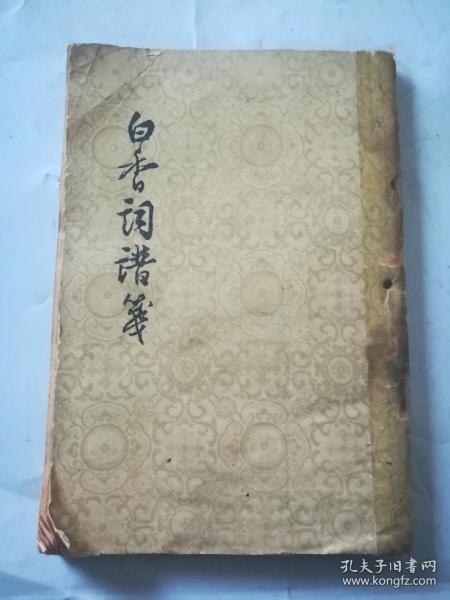 白香词谱笺
孔夫子旧书网
www.kongfz.com